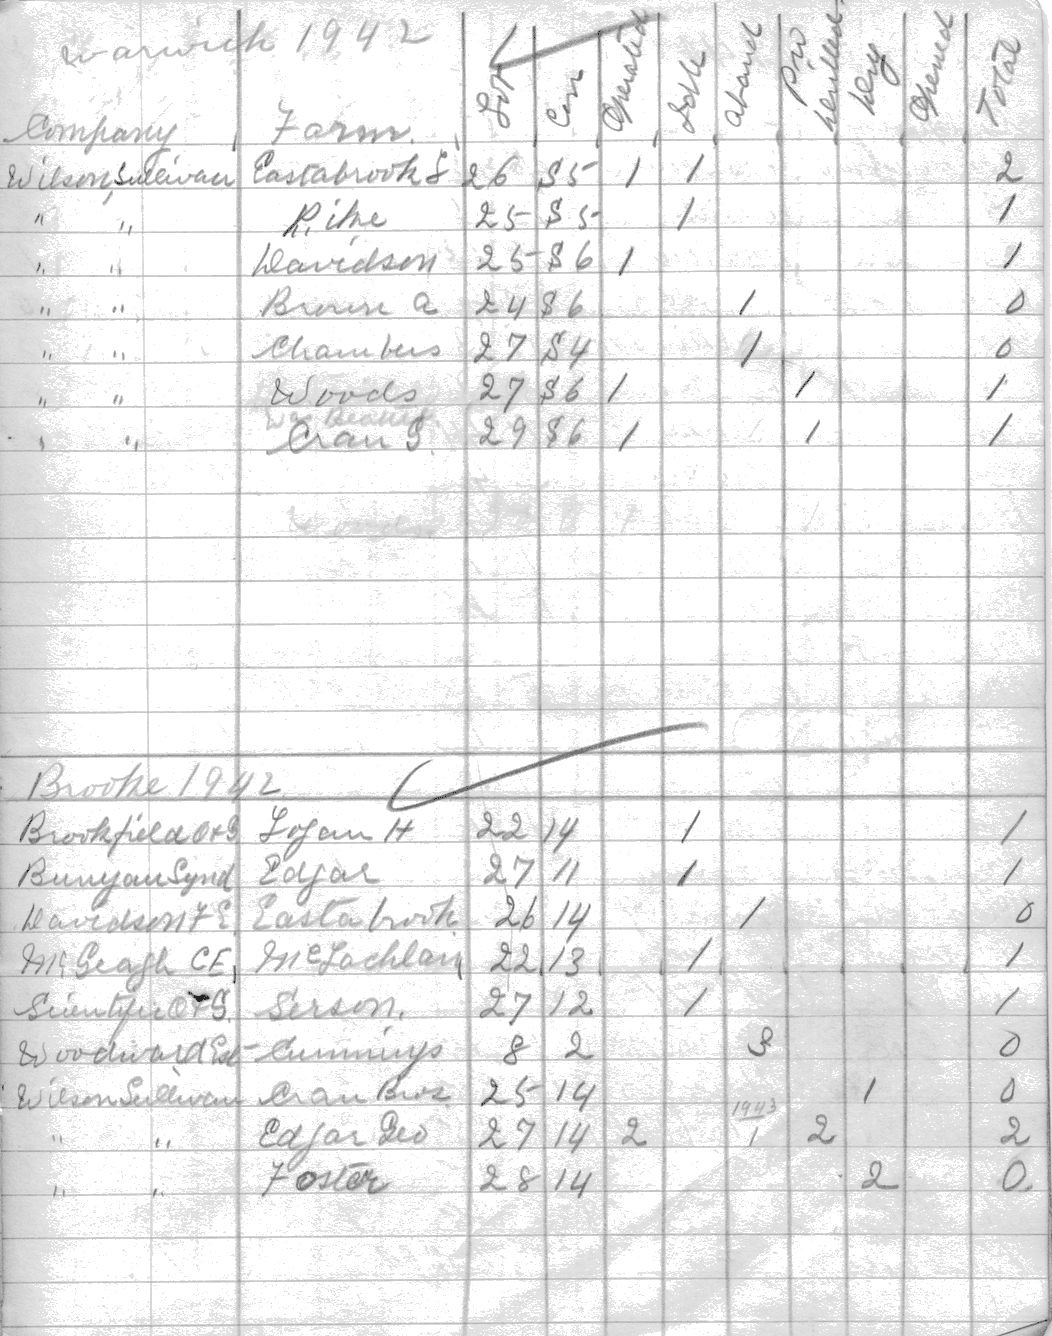 Warwick 1942
Company Farm. Lot Con Operated Idle Aband Pro Drilled Dry Opened Total
Wilson, Sullivan Eastabrook S 26 S5 1 1 2
" " Pike 25 S5 1 1
" " Davidson 25 S6 1 1
" " Brown A 24 S6 1 0
" " Chambers 27 S4 1 0
" " Woods 27 S6 1 1 1
" " Cran G. 29 S6 1 1 1
Brooke 1942
Brookfield O+G Logan H 22 14 1 1
Bunyan Synd Edgar 27 11 1 1
Davidson F E. Eastabrook 26 14 1 0
McGeagh CE, McLachlan 22 13 1 1
Scientific O+G. Serson. 27 12 1 1
Woodward Est Cummings 8 2 3 0
Wilson Sullivan Cran Bros. 25 14 1 0
1943
" " Edgar Geo 27 14 2 1 2 2
" " Foster 28 14 2 0.